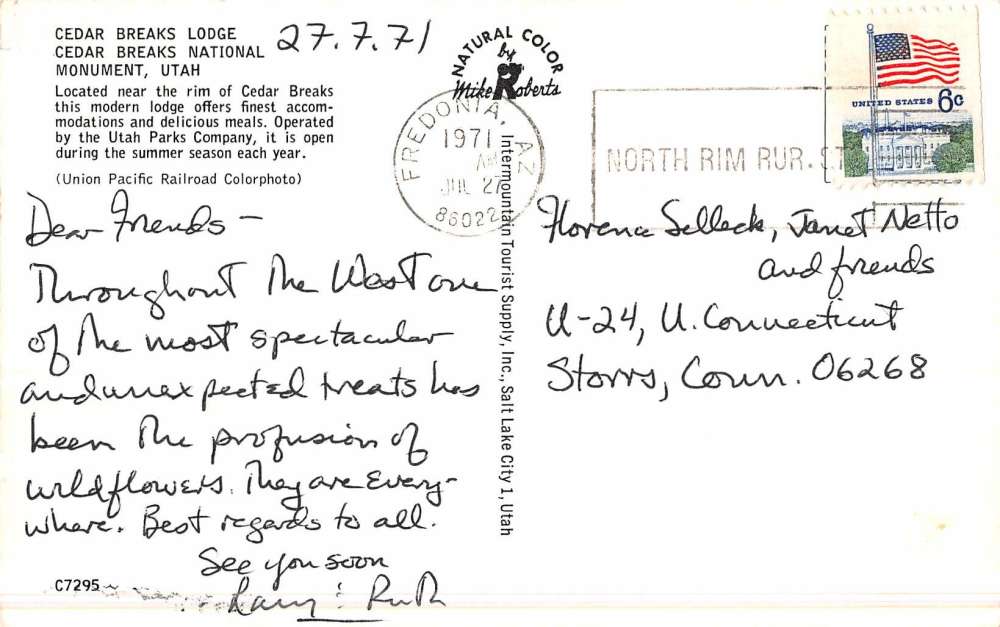 CEDAR BREAKS LODGE
CEDAR BREAKS NATIONAL
MONUMENT, UTAH
27.7.71
Located near the rim of Cedar Breaks
this modern lodge offers finest accom-
modations and delicious meals. Operated
by the Utah Parks Company, it is open
during the summer season each year.
(Union Pacific Railroad Colorphoto)
Dear Friends –
Throughout the West one
of the most spectacular
and unexpected treats has
been the profusion of
wildflowers. They are every-
where. Best regards to all.
See you soon
Larry & Ruth
C7295
NATURAL COLOR
by
Mike Roberts
FREDONIA, AZ
1971
AM
JUL 27
86022
Intermountain Tourist Supply, Inc., Salt Lake City 1, Utah
NORTH RIM RUR. ST
UNITED STATES 6c
Florence Selleck, Janet Netto
and friends
U-24, U. Connecticut
Storrs, Conn. 06268